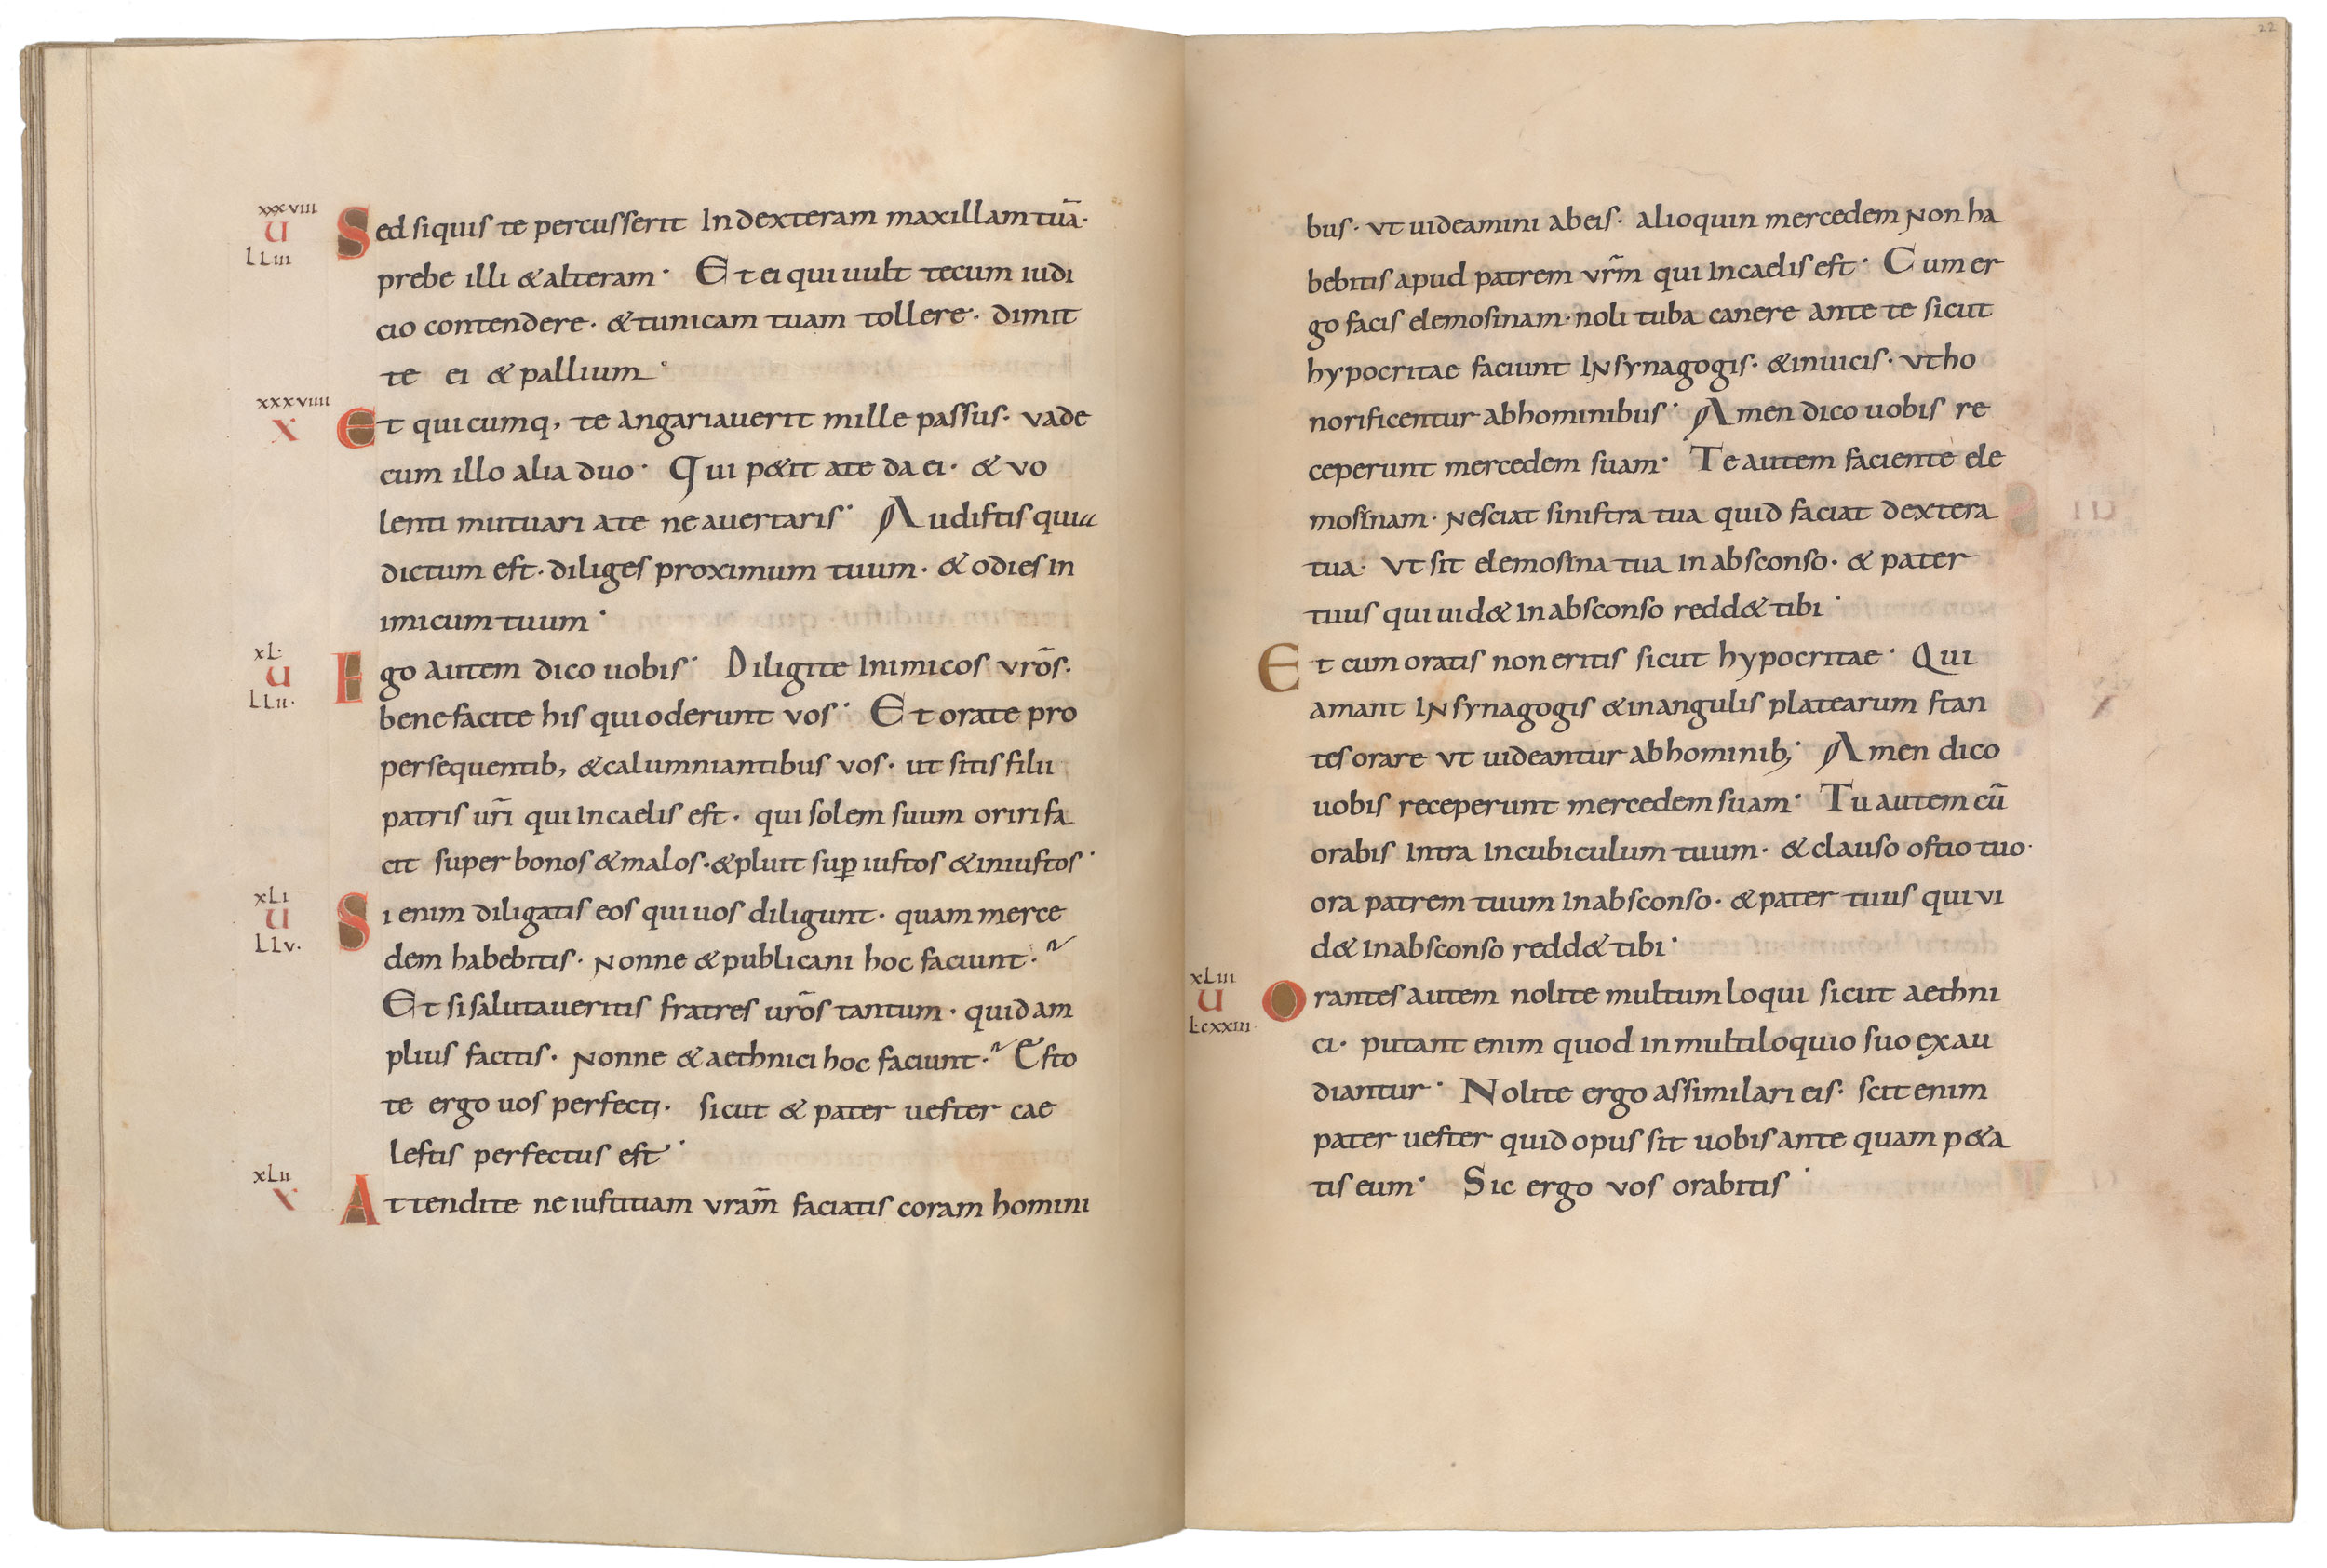 xxxviii
u
LLiii
Sed siquis te percusserit In dexteram maxillam tuā·
prebe illi & alteram· Et ei qui uult tecum iudi
cio contendere· & tunicam tuam tollere· dimit
te ei & pallium·
xxxviiii
x
Et qui cumq, te angariauerit mille passus· vade
cum illo alia duo· Qui p&it a te da ei· & vo
lenti mutuari a te ne auertaris· Audistis quia
dictum est· diliges proximum tuum· & odies in
imicum tuum·
xL·
u
LLii·
Ego autem dico uobis· Diligite Inimicos vrōs·
benefacite his qui oderunt vos· Et orate pro
persequentib, & calumniantibus vos· ut sitis filii
patris ur̄i qui In caelis est· qui solem suum oriri fa
cit super bonos & malos· & pluit sup̱ iustos & iniustos·
xLi
u
LLv·
Si enim diligatis eos qui uos diligunt· quam merce
dem habebitis· Nonne & publicani hoc faciunt·
Et si salutaueritis fratres urōs tantum· quid am
plius facitis· Nonne & aethnici hoc faciunt· Esto
te ergo uos perfecti· sicut & pater uester cae
lestis perfectus est·
xLii
x
Attendite ne iustitiam vram̄ faciatis coram homini
22
bus· vt uideamini ab eis· alioquin mercedem Non ha
bebitis apud patrem vrm̄ qui In caelis est· Cum er
go facis elemosinam· noli tuba canere ante te sicut
hypocritae faciunt IN synagogis· & in uicis· vt ho
norificentur ab hominibus· Amen dico uobis re
ceperunt mercedem suam· Te autem faciente ele
mosinam· Nesciat sinistra tua quid faciat dextera
tua· vt sit elemosina tua In absconso· & pater
tuus qui uid& In absconso redd& tibi·
Et cum oratis non eritis sicut hypocritae· Qui
amant IN synagogis & in angulis platearum stan
tes orare vt uideantur ab hominib;· Amen dico
uobis receperunt mercedem suam· Tu autem cū
orabis Intra In cubiculum tuum· & clauso ostio tuo·
ora patrem tuum In absconso· & pater tuus qui vi
d& In absconso redd& tibi·
xLiii
u
Lcxxiii·
Orantes autem nolite multum loqui sicut aethni
ci· putant enim quod in multiloquio suo exau
diantur· Nolite ergo assimilari eis· scit enim
pater uester quid opus sit uobis ante quam p&a
tis eum· Sic ergo vos orabitis·